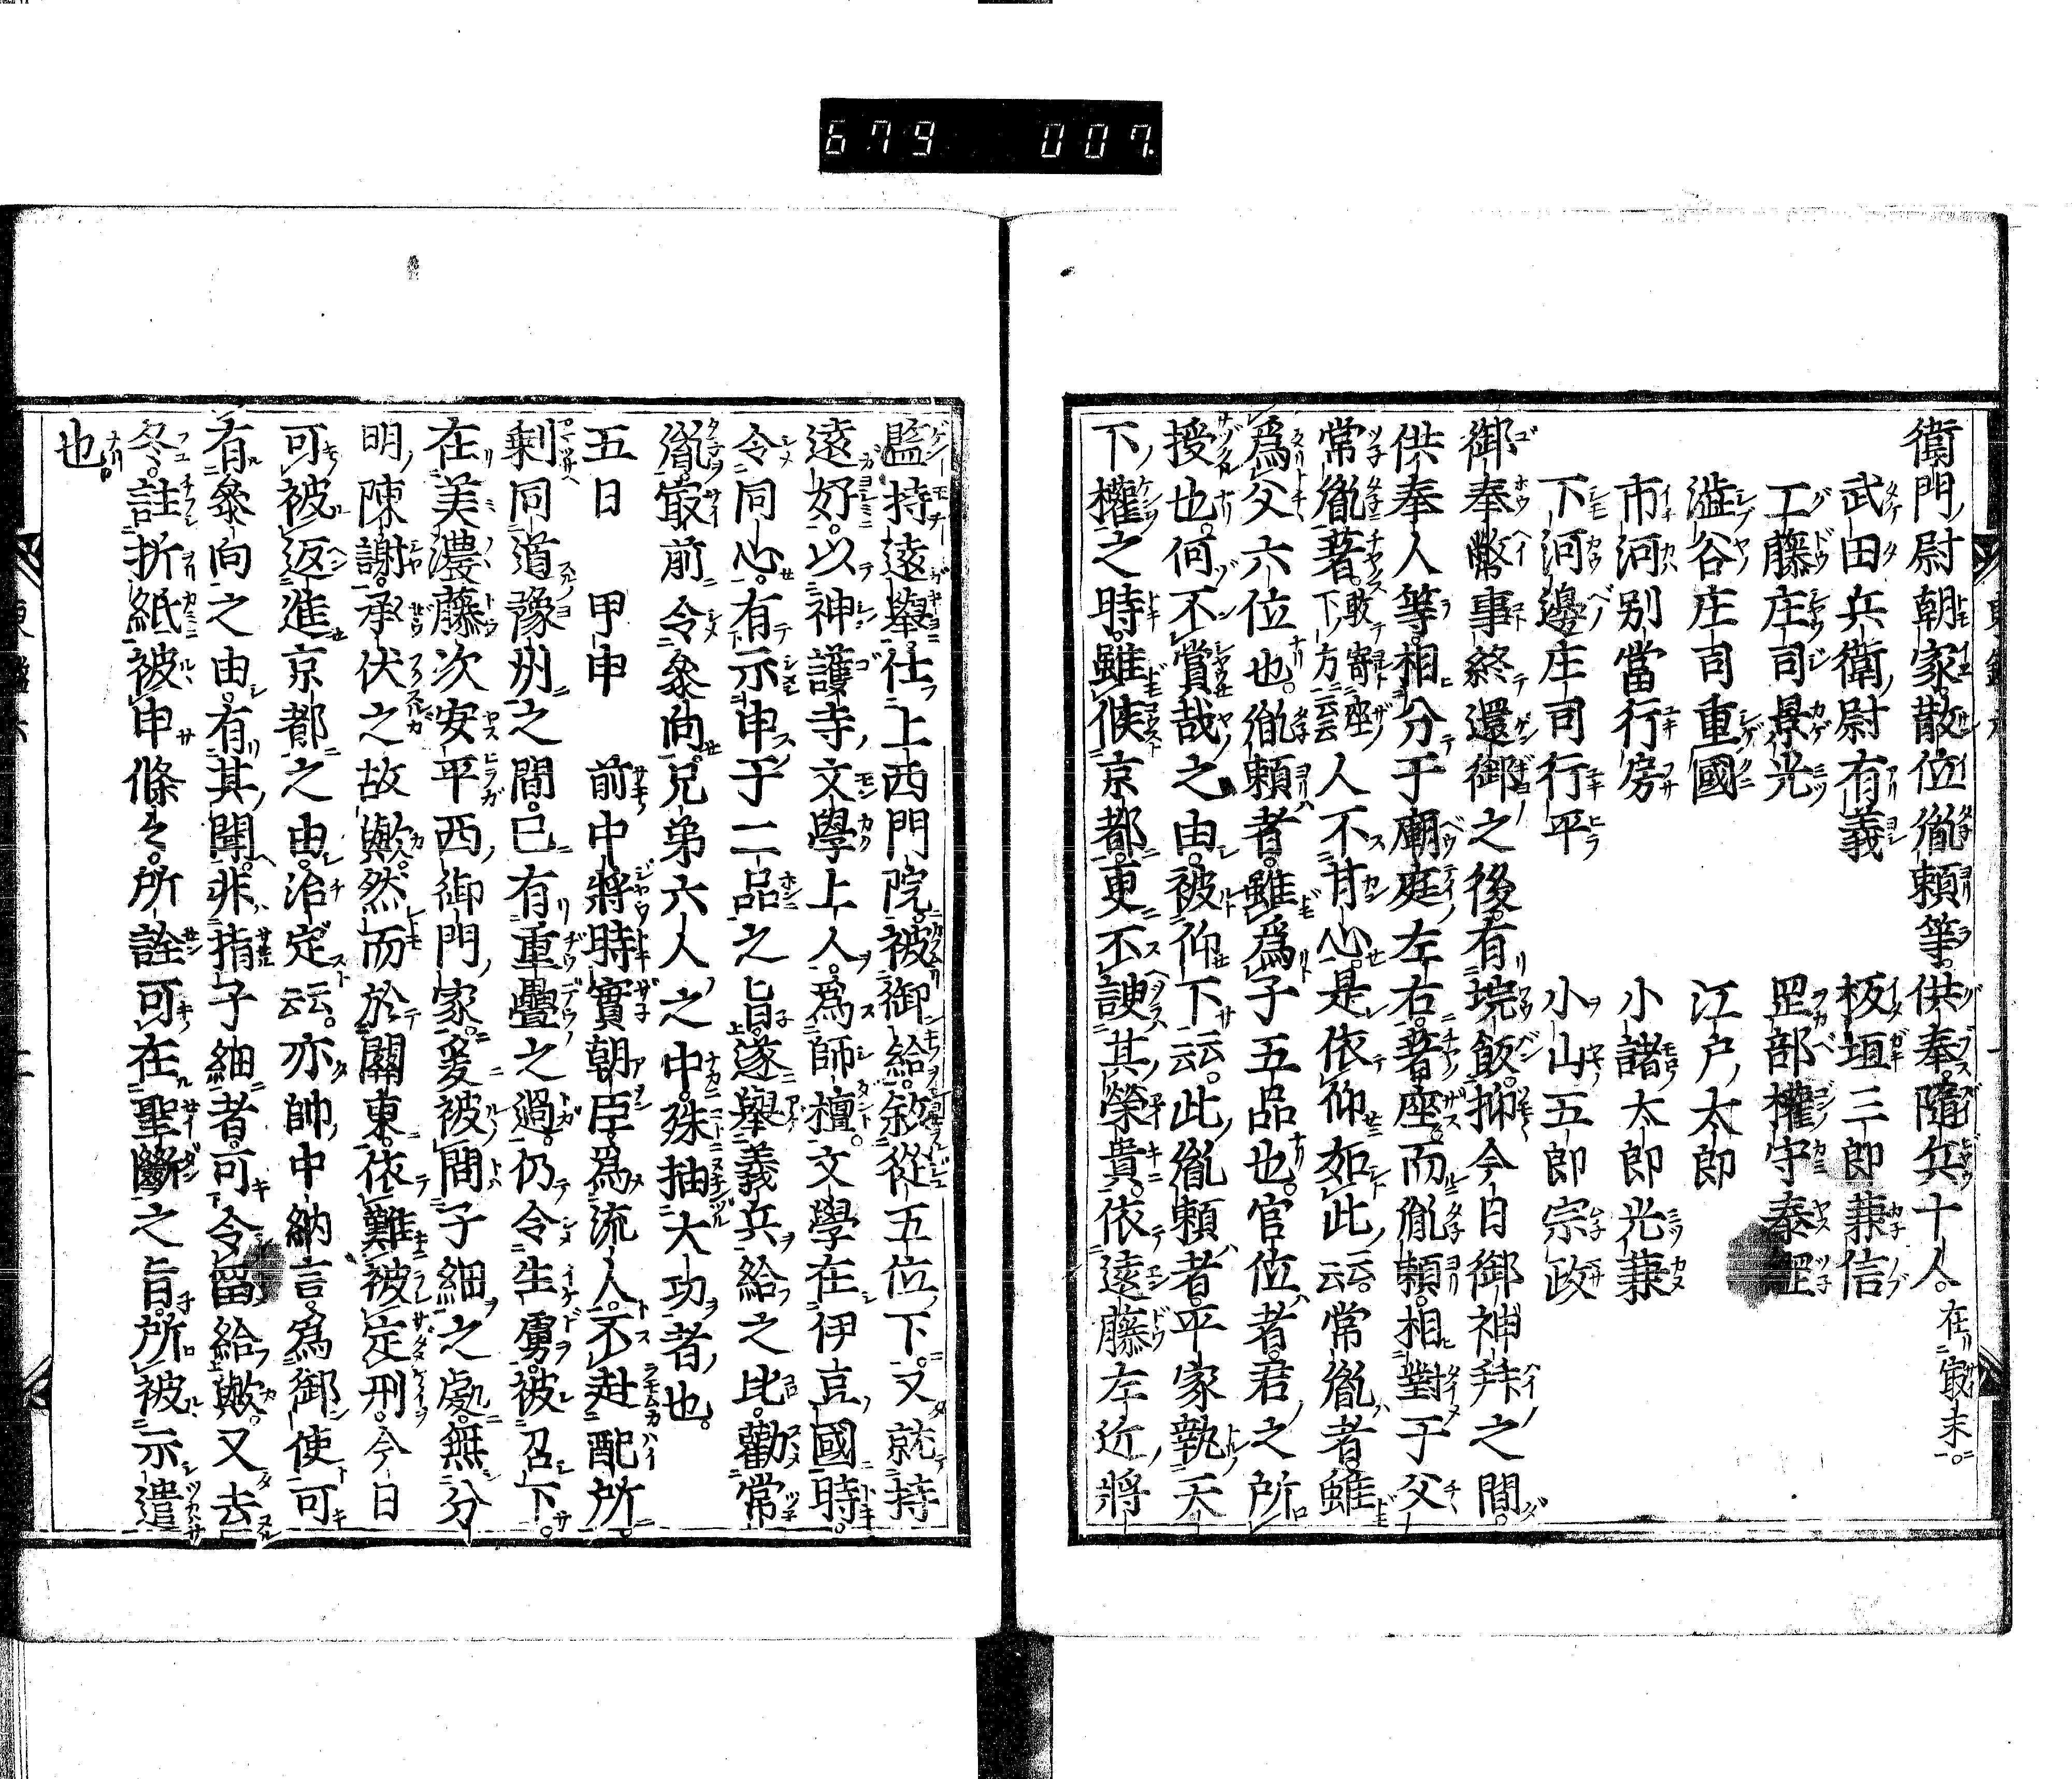 679 007.
衛門尉朝家。散位胤頼等。供奉。隨兵十人。在最末。
武田兵衛尉有義 板垣三郎兼信
工藤庄司景光 罡部權守泰罡
澁谷庄司重國 江戸太郎
市河別當行房 小諸太郎光兼
下河邊庄司行平 小山五郎宗政
御奉幣事終還御之後。有垸飯。抑今日御神拜之間。
供奉人等。相分于廟庭左右。著座。而胤頼。相對于父
常胤著。敢寄座下方云云人不甘心。是依仰如此云云。常胤者。雖
爲父六位也。胤頼者。雖爲子五品也。官位者。君之所
授也。何不賞哉之由。被仰下云云。此胤頼者。平家執天
下權之時。雖候京都。更不諛其榮貴。依遠藤左近將
監持遠擧。仕上西門院。被御給。叙從五位下。又就持
遠好。以神護寺文學上人。爲師檀。文學在伊豆國時。
令同心。有示申于二品之旨。遂擧義兵給之比。勸常
胤最前令參向。兄弟六人之中。殊抽大功者也。
五日 甲申 前中將時實朝臣。爲流人。不赴配所。
剩同道豫州之間。已有重疊之過。仍令生虜。被召下。
在美濃藤次安平西御門家。爰被問子細之處。無分
明陳謝。承伏之故歟。然而於關東。依難被定刑。今日
可被返進京都之由。治定云云。亦帥中納言。爲御使可
有參向之由。有其聞。非指子細者。可令留給歟。又去
冬。註折紙被申條々。所詮可在聖斷之旨。所被示遣
也。